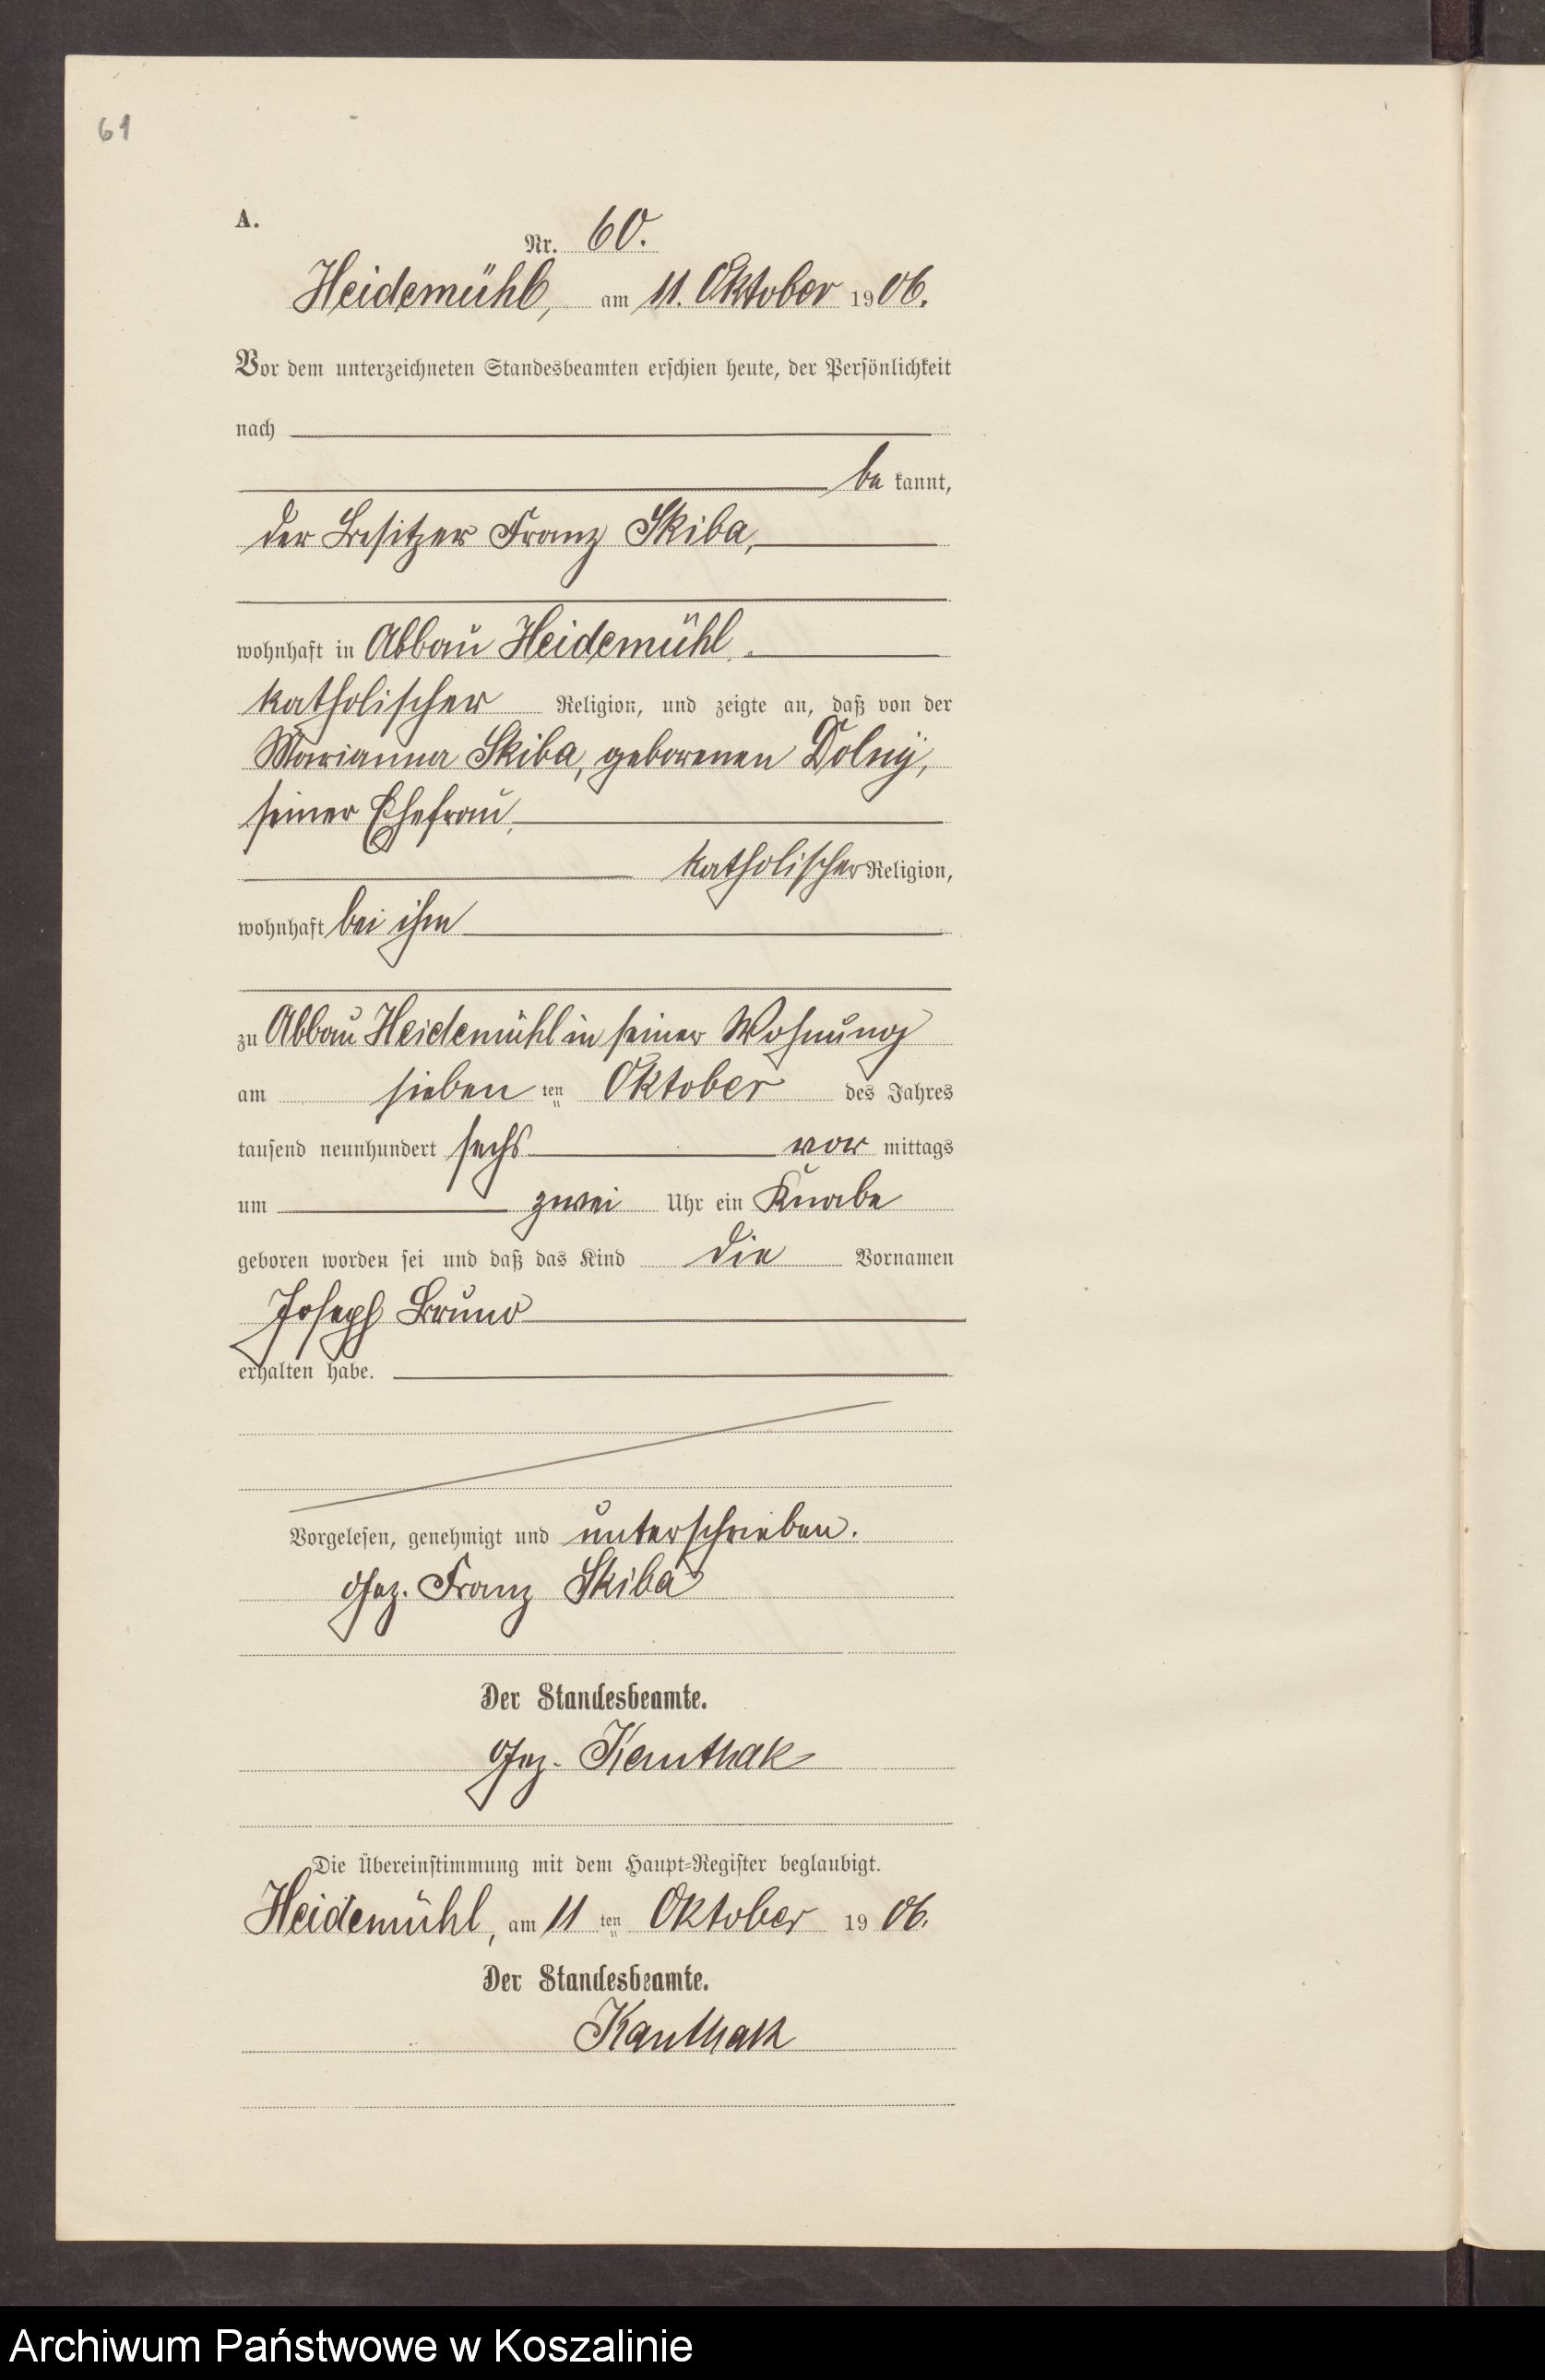 61
A.
Nr. 60.
Heidemühl, am 11. Oktober 1906.
Vor dem unterzeichneten Standesbeamten erschien heute, der Persönlichkeit
nach
be kannt,
der Besitzer Franz Skiba,
wohnhaft in Abbau Heidemühl.
katholischer Religion, und zeigte an, daß von der
Marianna Skiba, geborenen Dolny,
seiner Ehefrau,
katholischer Religion,
wohnhaft bei ihm
zu Abbau Heidemühl in seiner Wohnung
am sieben ten Oktober des Jahres
tausend neunhundert sechs vor mittags
um zwei Uhr ein Knabe
geboren worden sei und daß das Kind die Vornamen
Joseph Bruno
erhalten habe.
Vorgelesen, genehmigt und unterschrieben.
Gez. Franz Skiba
Der Standesbeamte.
Gez. Kanthak
Die Übereinstimmung mit dem Haupt-Register beglaubigt.
Heidemühl, am 11 ten Oktober 1906.
Der Standesbeamte.
Kanthak
Archiwum Państwowe w Koszalinie